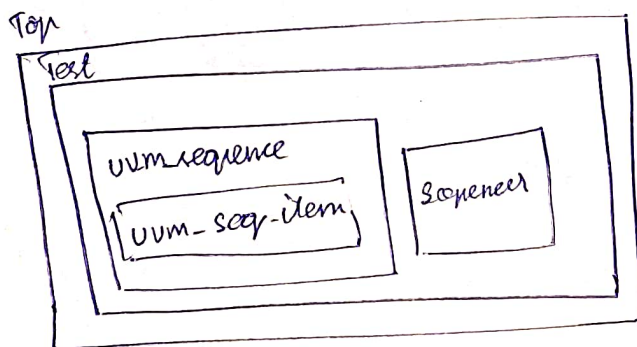 Top
Test
uvm_sequence
uvm_seq_item
Sequencer